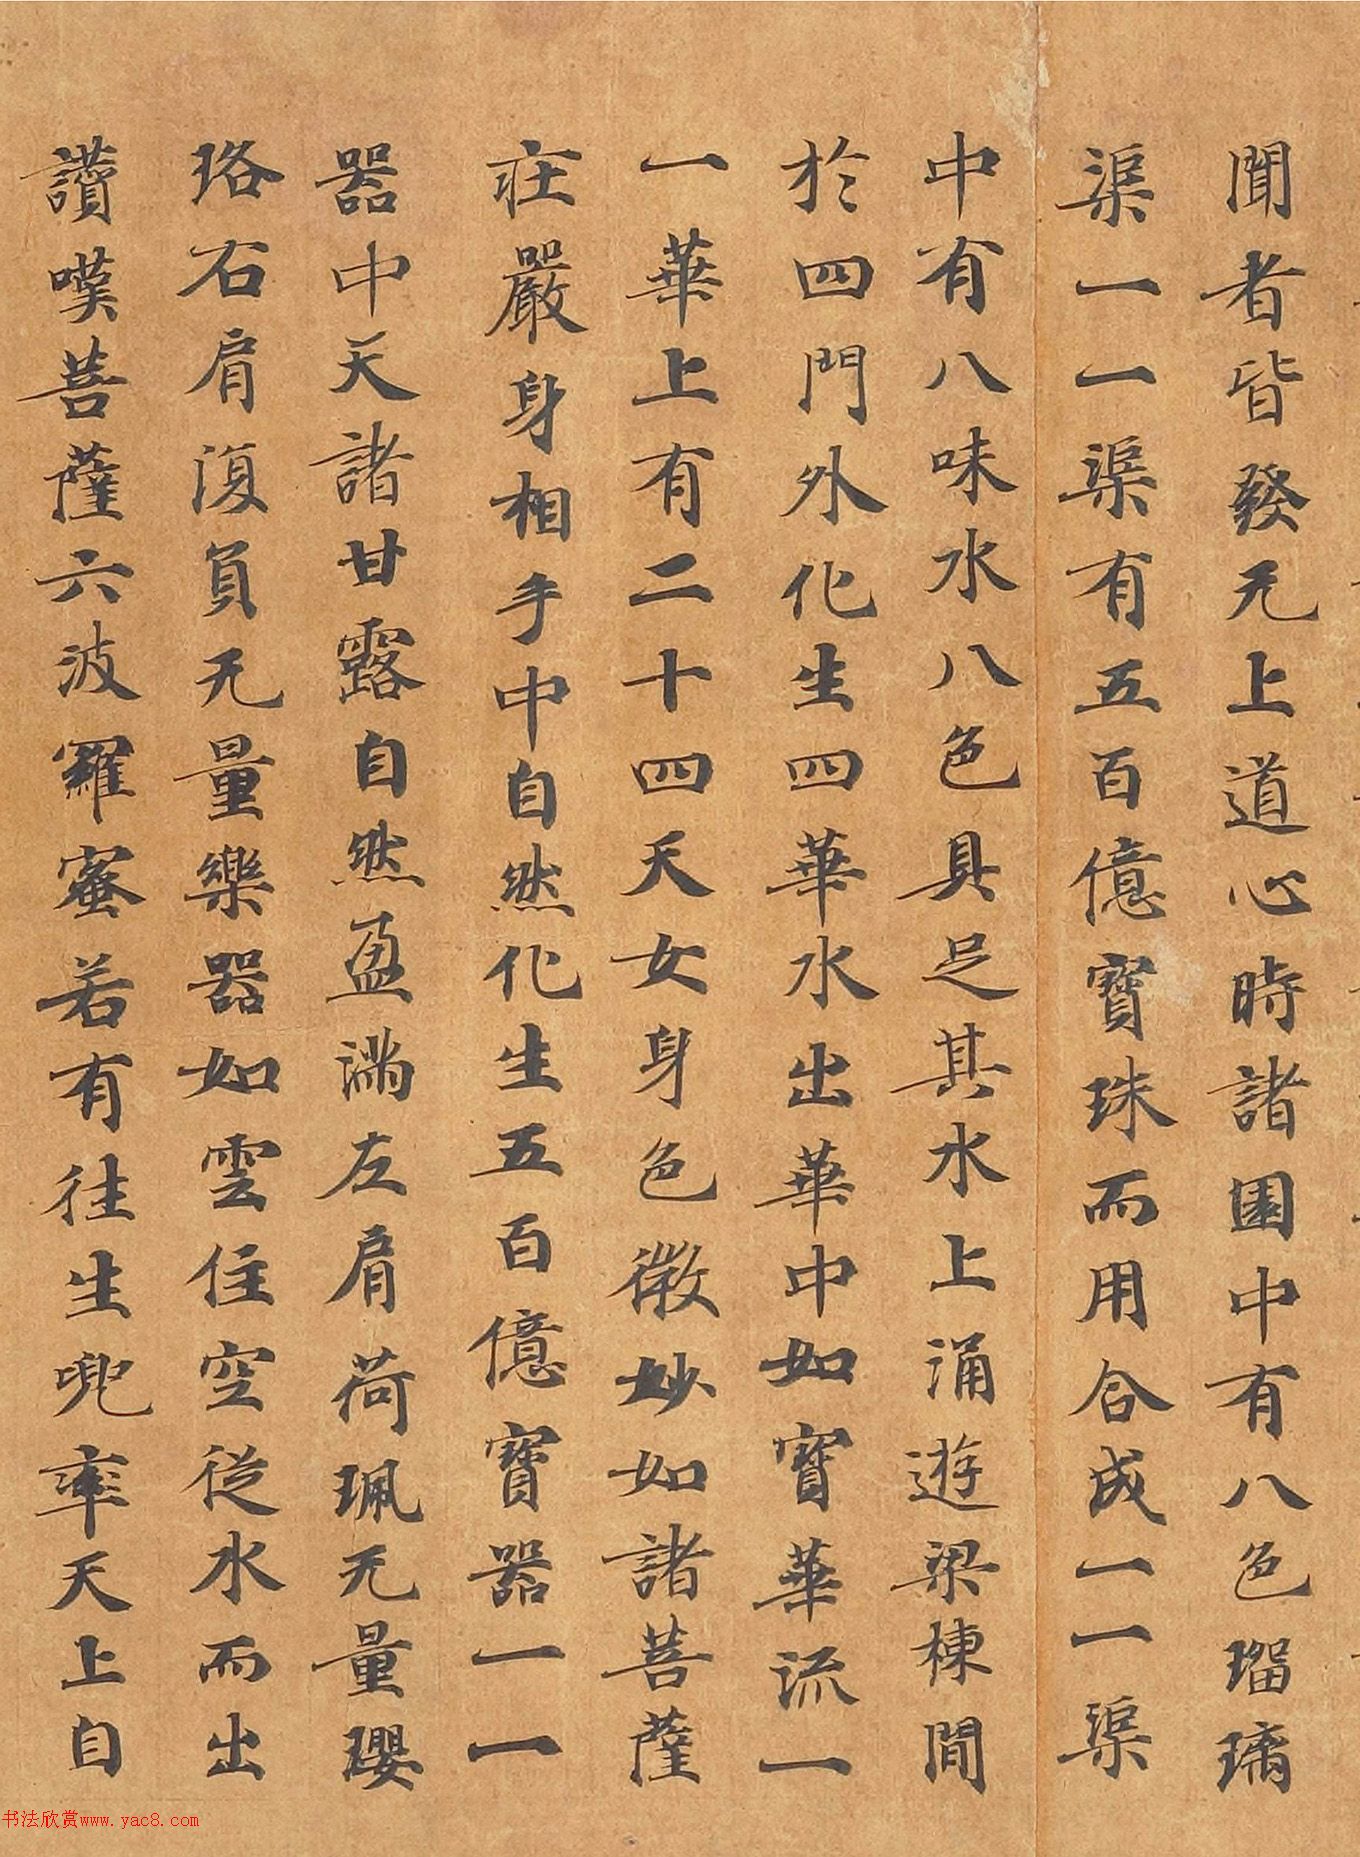 聞者皆發无上道心時諸園中有八色瑠璃
渠一一渠有五百億寶珠而用合成一一渠
中有八味水八色具足其水上涌遊梁棟間
於四門外化生四華水出華中如寶華流一
一華上有二十四天女身色微妙如諸菩薩
莊嚴身相手中自然化生五百億寶器一一
器中天諸甘露自然盈滿左肩荷珮无量瓔
珞右肩復負无量樂器如雲住空從水而出
讚嘆菩薩六波羅蜜若有往生兜率天上自
书法欣赏www.yac8.com